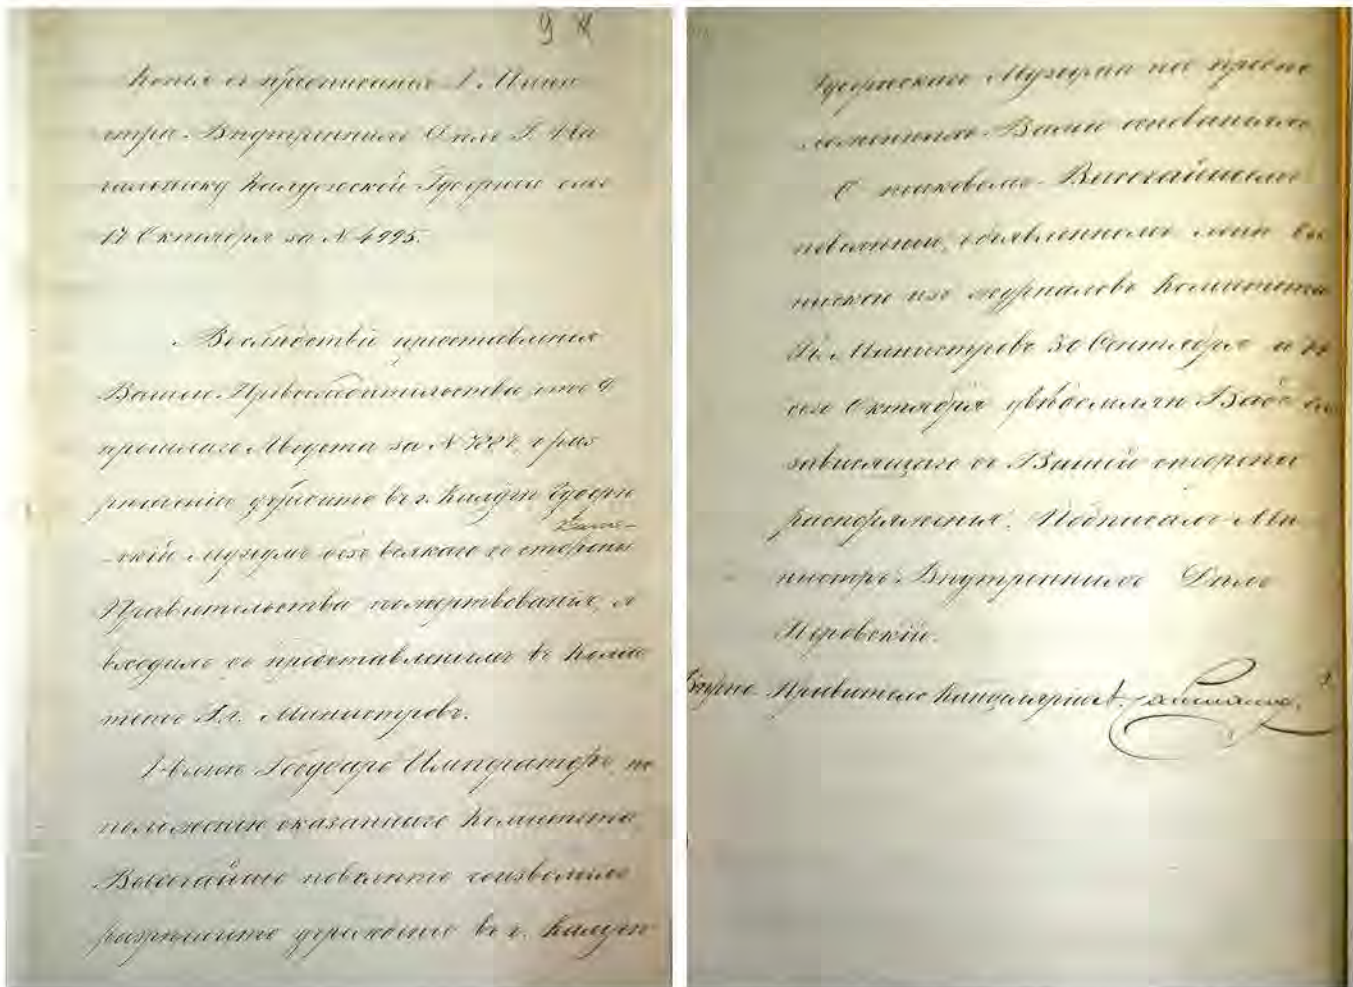 Копия съ предписания Г. Мини
стра Внутреннихъ Делъ Г. На
чальнику Калужской Губернии отъ
17 Октября за N 4995.
Вследствие представления
Вашего Превосходительства отъ 9
прошлаго Августа за N о раз
решении устроить въ г. Калуге Губерн
скій Музеумъ безъ всякаго со стороны
Правительства пожертвования, я
входилъ съ представлениемъ въ Коми
тетъ Г.г. Министровъ.
Ныне Государь Императоръ, по
положению Комитета,
Высочайше повелеть соизволилъ
разрешить учреждение въ г. Калуге
Губернскаго Музеума на предпо
ложенныхъ Вами основанияхъ
О таковомъ Высочайшемъ
повелении, объявленномъ мне вы
пискою изъ журналовъ Комитета
Гг. Министровъ 30 Сентября и
Октября уведомляю Васъ для
зависящаго съ Вашей стороны
распоряжения. Подписалъ Ми
нистръ Внутреннихъ Делъ
Перовскій.
Верно: Правитель Канцелярии